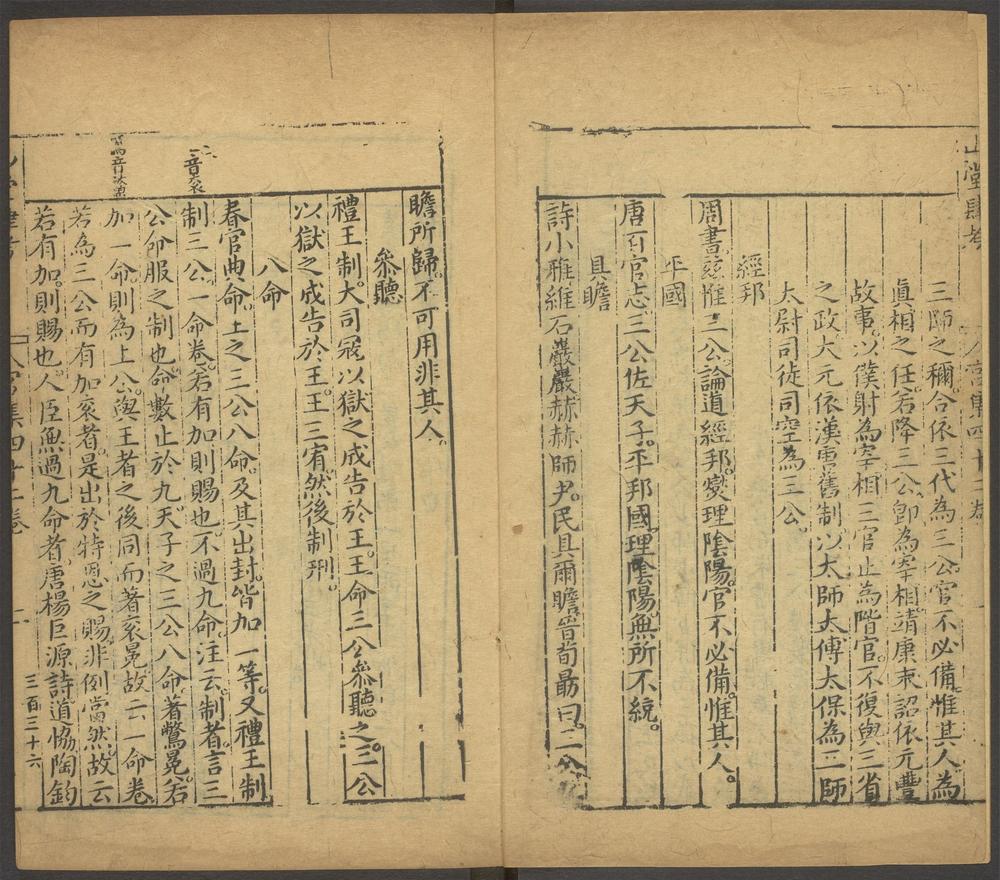 山堂肆考
三師之稱合依三代為三公官不必備惟其人為
眞相之任若降三公卽為宰相靖康末詔依元豐
故事以僕射為宰相三官止為階官不復與三省
之政大元依漢唐舊制以太師太傅太保為三師
太尉司徒司空為三公。
經邦
周書玆惟三公論道經邦。燮理陰陽。官不必備。惟其人。
平國
唐百官志三公佐天子。平邦國。理陰陽。無所不統。
具瞻
詩小雅維石巖巖赫赫師尹。民具爾瞻晉荀勗曰。三公
瞻所歸。不可用非其人。
叅聽
禮王制。大司寇以獄之成告於王。王命三公叅聽之。三公
以獄之成告於王。王三宥。然後制刑。
八命
春官典命。王之三公八命。及其出封。皆加一等。又禮王制
制三公。一命卷。若有加則賜也。不過九命。注云。制者。言三
一音衮
公命服之制也。命數止於九。天子之三公八命。著鷩冕。若
加一命。則為上公。與王者之後同而著衮冕。故云一命卷
若為三公而有加衮者。是出於特恩之賜。非例當然。故云
若有加。則賜也。人臣無過九命者。唐楊巨源詩。道協陶鈞
三百三十六